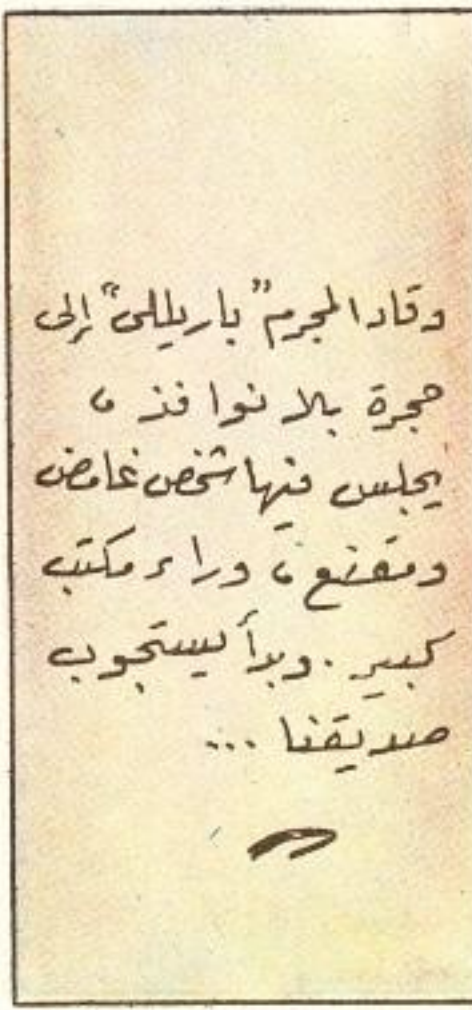 وقاد المجرم "باريللى" إلى
حجرة بلا نوافذ،
يجلس فيها شخص غامض
ومقنع، وراء مكتب
كبير. وبدأ يستجوب
صديقنا ...